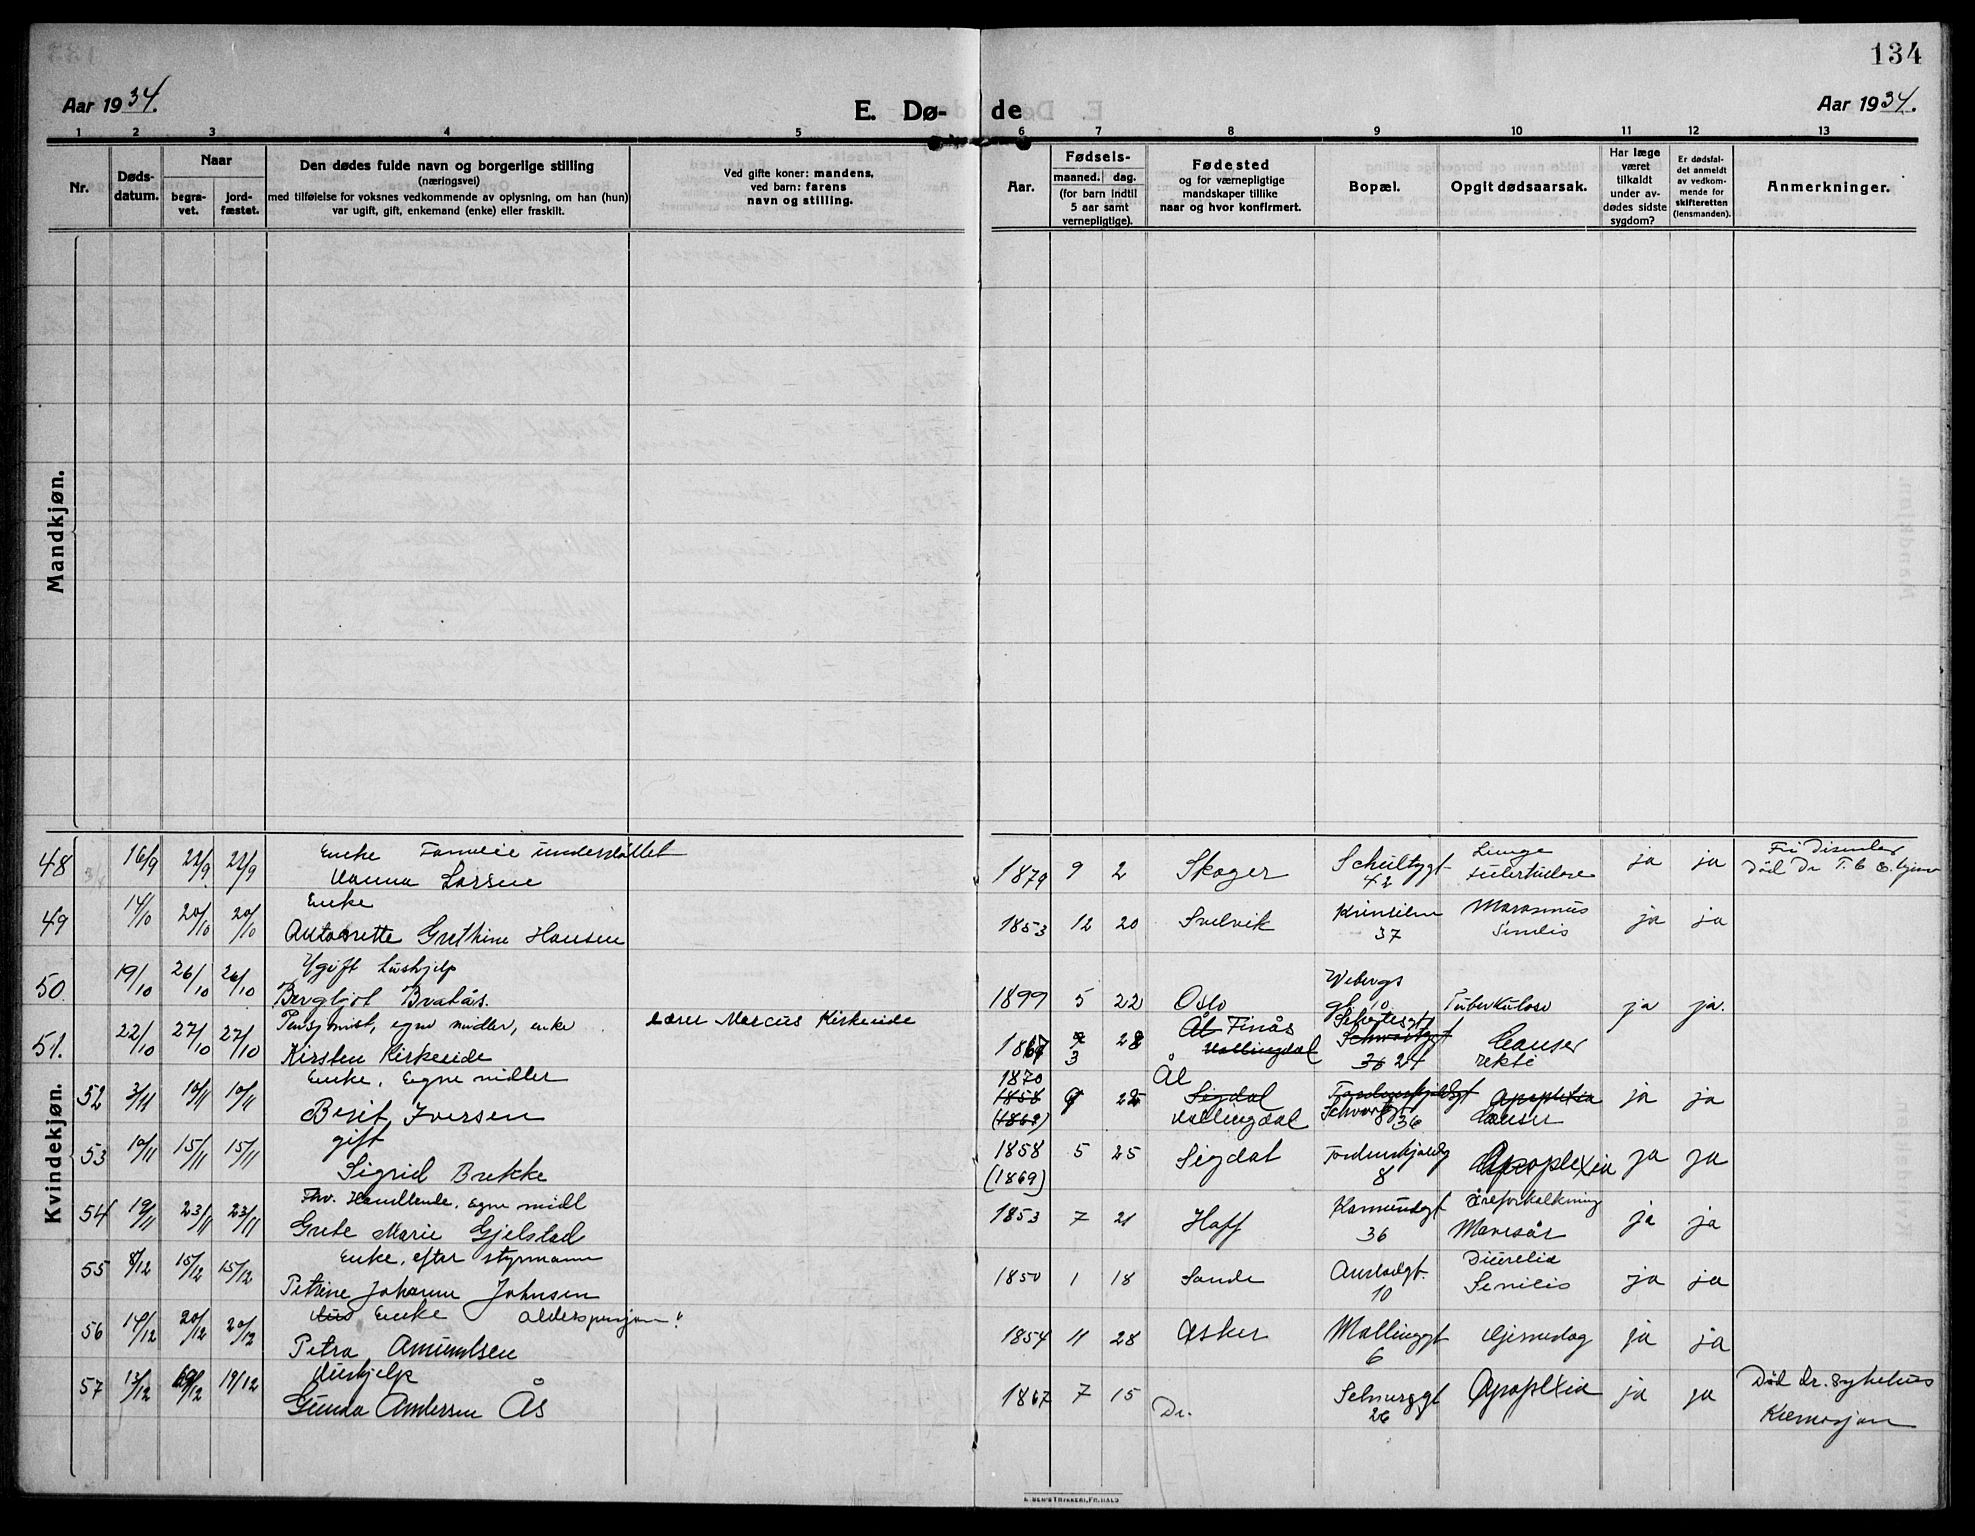 134
Aar 1934.
E. Dø-
de
Aar 1934.
1 2 3 4 5 6 7 8 9 10 11 12 13
Nr.
Døds-
datum.
Naar
begra-
vet.
jord-
fæstet.
Den dødes fulde navn og borgerlige stilling
(næringsvei)
med tilføielse for voksnes vedkommende av oplysning, om han (hun)
var ugift, gift, enkemand (enke) eller fraskilt.
Ved gifte koner: mandens,
ved barn: farens
navn og stilling.
Aar.
Fødsels-
maaned. dag.
(for barn indtil
5 aar samt
vernepligtige).
Fødested
og for værnepligtige
mandskaper tillike
naar og hvor konfirmert.
Bopæl.
Opgit dødsaarsak.
Har læge
været
tilkaldt
under av-
dødes sidste
sygdom?
Er dødsfal-
det anmeldt
av vedkom-
mende for
skifteretten
(lensmanden).
Anmerkninger.
Mandkjøn.
Kvindekjøn.
48 16/9 22/9 22/9 Enke Familie understøttet
Larsen 1879 9 2 Skoger 42 Lunge
ja ja Død Dr.
49 14/10 20/10 20/10 Enke
Grethine Hansen 1853 12 20 Svelvik 37 Marasmus
ja ja
50 19/10 26/10 26/10 Ugift
Bergljot Bratås. 1899 5 22 Oslo Wibergs
gt 10 Tuberkulose ja ja.
51. 22/10 27/10 27/10 Pensjonist, egne midler, enke Lærer Marcus Kirkeeide
Kirsten Kirkeeide 3 28 Ål Finås
Hallingdal
36 24 Cancer
rekti
52 3/11 10/11 10/11 Enke. Egne midler
Berit Iversen 1870
1858
(1869) 9 Ål
Sigdal
Hallingdal
36 Apoplexia
Cancer ja ja
53 10/11 15/11 15/11 gift
Sigrid Brekke 1858
(1869) 5 25 Sigdal Tordenskjoldsg
8 Apoplexia ja ja
54 19/11 23/11 23/11 Fhv. Handlende. Egne midl
Grete Marie Gjelstad 1853 7 21 Hoff 36 Åreforkalkning
Mavesår ja ja
55 8/12 15/12 15/12 Enke, efter styrmann
Petrine Johanne Johnsen 1850 1 18 Sande
10 Senilis ja ja
56 14/12 20/12 20/12 Enke Alderspensjon
Petra Amundsen 1854 11 28 Asker Mallinggt
6 ja ja
57 13/12 19/12 19/12
Gunda Andersen Ås 1867 7 15 Dr.
26 Apoplexia ja ja Død Dr. Sykehus
Kremasjon